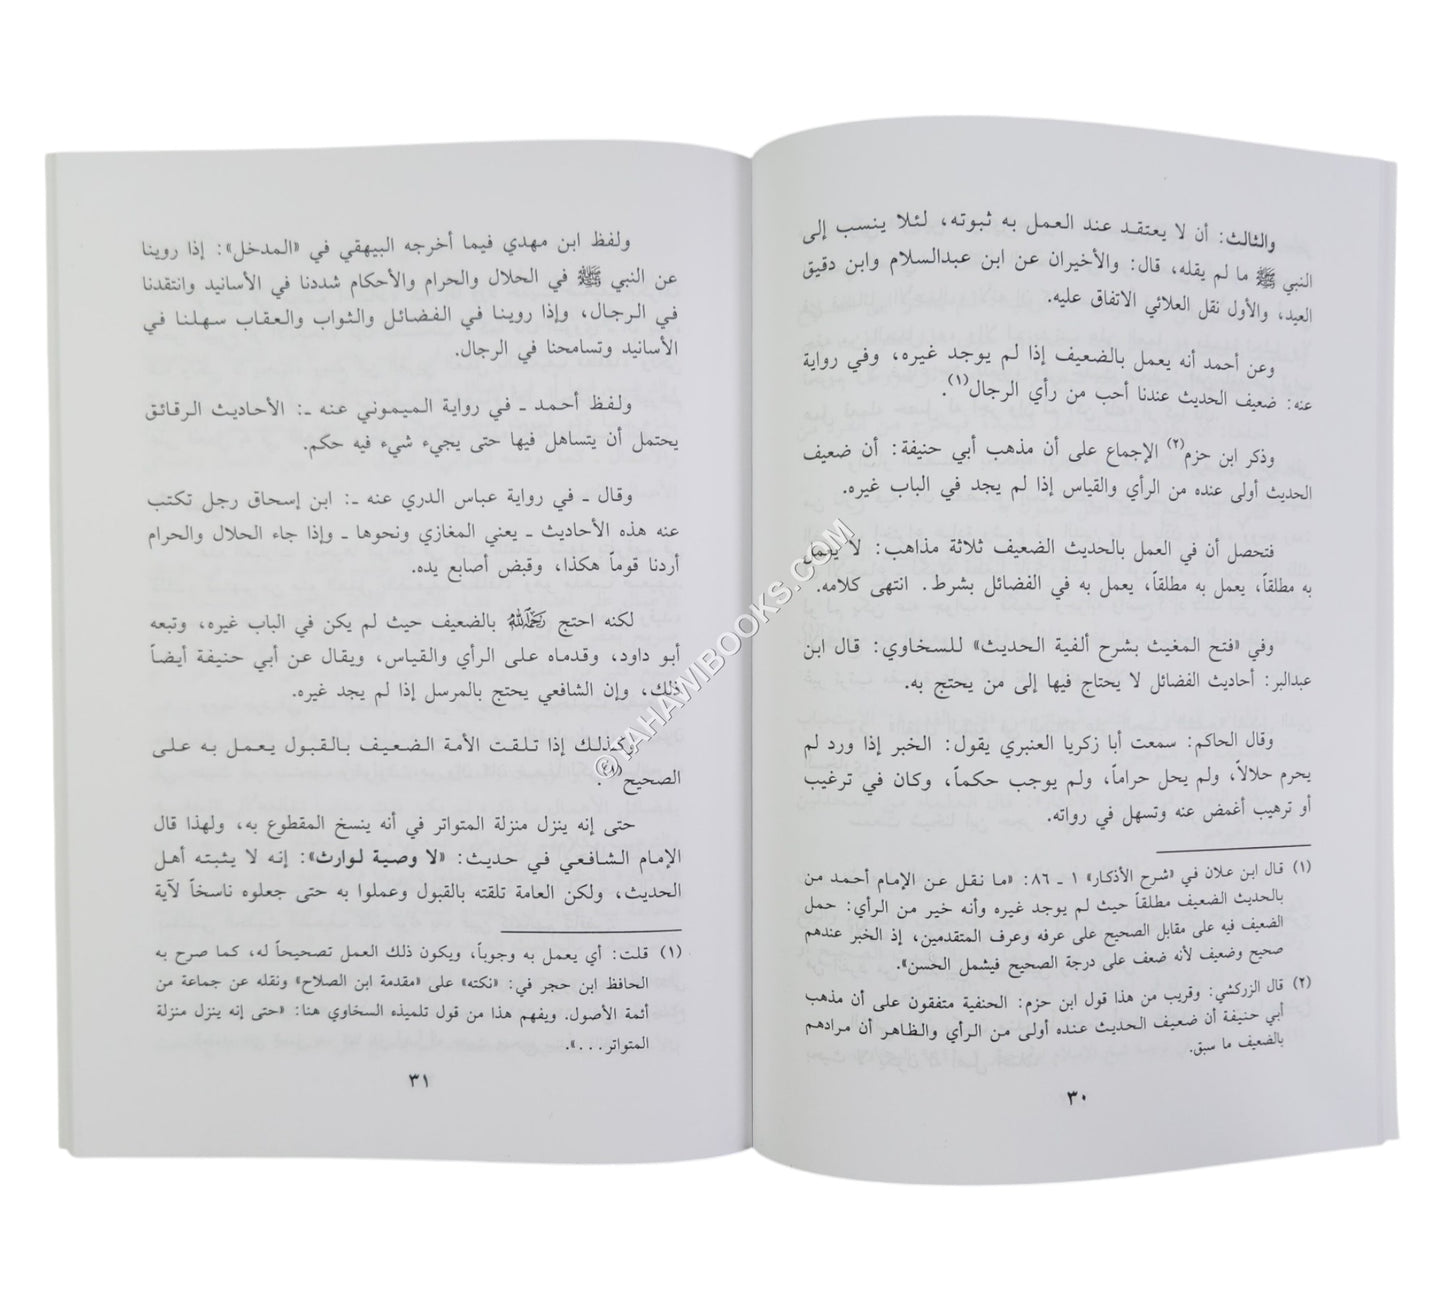 والثالث: أن لا يعتقد عند العمل به ثبوته، لئلا ينسب إلى
النبي ﷺ ما لم يقله، قال: والأخيران عن ابن عبدالسلام وابن دقيق
العيد، والأول نقل العلائي الاتفاق عليه.
وعن أحمد أنه يعمل بالضعيف إذا لم يوجد غيره، وفي رواية
عنه: ضعيف الحديث عندنا أحب من رأي الرجال(١).
وذكر ابن حزم(٢) الإجماع على أن مذهب أبي حنيفة: أن ضعيف
الحديث أولى عنده من الرأي والقياس إذا لم يجد في الباب غيره.
فتحصل أن في العمل بالحديث الضعيف ثلاثة مذاهب: لا يعمل
به مطلقاً، يعمل به مطلقاً، يعمل به في الفضائل بشرط. انتهى كلامه.
وفي «فتح المغيث بشرح ألفية الحديث» للسخاوي: قال ابن
عبدالبر: أحاديث الفضائل لا يحتاج فيها إلى من يحتج به.
وقال الحاكم: سمعت أبا زكريا العنبري يقول: الخبر إذا ورد لم
يحرم حلالاً، ولم يحل حراماً، ولم يوجب حكماً، وكان في ترغيب
أو ترهيب أغمض عنه وتسهل في رواته.
(١) قال ابن علان في «شرح الأذكار» ١ ـ ٨٦: «ما نقل عن الإمام أحمد من
بالحديث الضعيف مطلقاً حيث لم يوجد غيره وأنه خير من الرأي: حمل
الضعيف فيه على مقابل الصحيح على عرفه وعرف المتقدمين، إذ الخبر عندهم
صحيح وضعيف لأنه ضعف على درجة الصحيح فيشمل الحسن».
(٢) قال الزركشي: وقريب من هذا قول ابن حزم: الحنفية متفقون على أن مذهب
أبي حنيفة أن ضعيف الحديث عنده أولى من الرأي والظاهر أن مرادهم
بالضعيف ما سبق.
٣٠
ولفظ ابن مهدي فيما أخرجه البيهقي في «المدخل»: إذا روينا
عن النبي ﷺ في الحلال والحرام والأحكام شددنا في الأسانيد وانتقدنا
في الرجال، وإذا روينا في الفضائل والثواب والعقاب سهلنا في
الأسانيد وتسامحنا في الرجال.
ولفظ أحمد ـ في رواية الميموني عنه ـ: الأحاديث الرقائق
يحتمل أن يتساهل فيها حتى يجيء شيء فيه حكم.
وقال ـ في رواية عباس الدري عنه ـ: ابن إسحاق رجل تكتب
عنه هذه الأحاديث ـ يعني المغازي ونحوها ـ وإذا جاء الحلال والحرام
أردنا قوماً هكذا، وقبض أصابع يده.
لكنه احتج رحمه الله بالضعيف حيث لم يكن في الباب غيره، وتبعه
أبو داود، وقدماه على الرأي والقياس، ويقال عن أبي حنيفة أيضاً
ذلك، وإن الشافعي يحتج بالمرسل إذا لم يجد غيره.
وكذلك إذا تلقت الأمة الضعيف بالقبول يعمل به على
الصحيح(١).
حتى إنه ينزل منزلة المتواتر في أنه ينسخ المقطوع به، ولهذا قال
الإمام الشافعي في حديث: «لا وصية لوارث»: إنه لا يثبته أهل
الحديث، ولكن العامة تلقته بالقبول وعملوا به حتى جعلوه ناسخاً لآية
(١) قلت: أي يعمل به وجوباً، ويكون ذلك العمل تصحيحاً له، كما صرح به
الحافظ ابن حجر في: «نكته» على «مقدمة ابن الصلاح» ونقله عن جماعة من
أئمة الأصول. ويفهم هذا من قول تلميذه السخاوي هنا: «حتى إنه ينزل منزلة
المتواتر...».
٣١
©TAHAWIBOOKS.COM